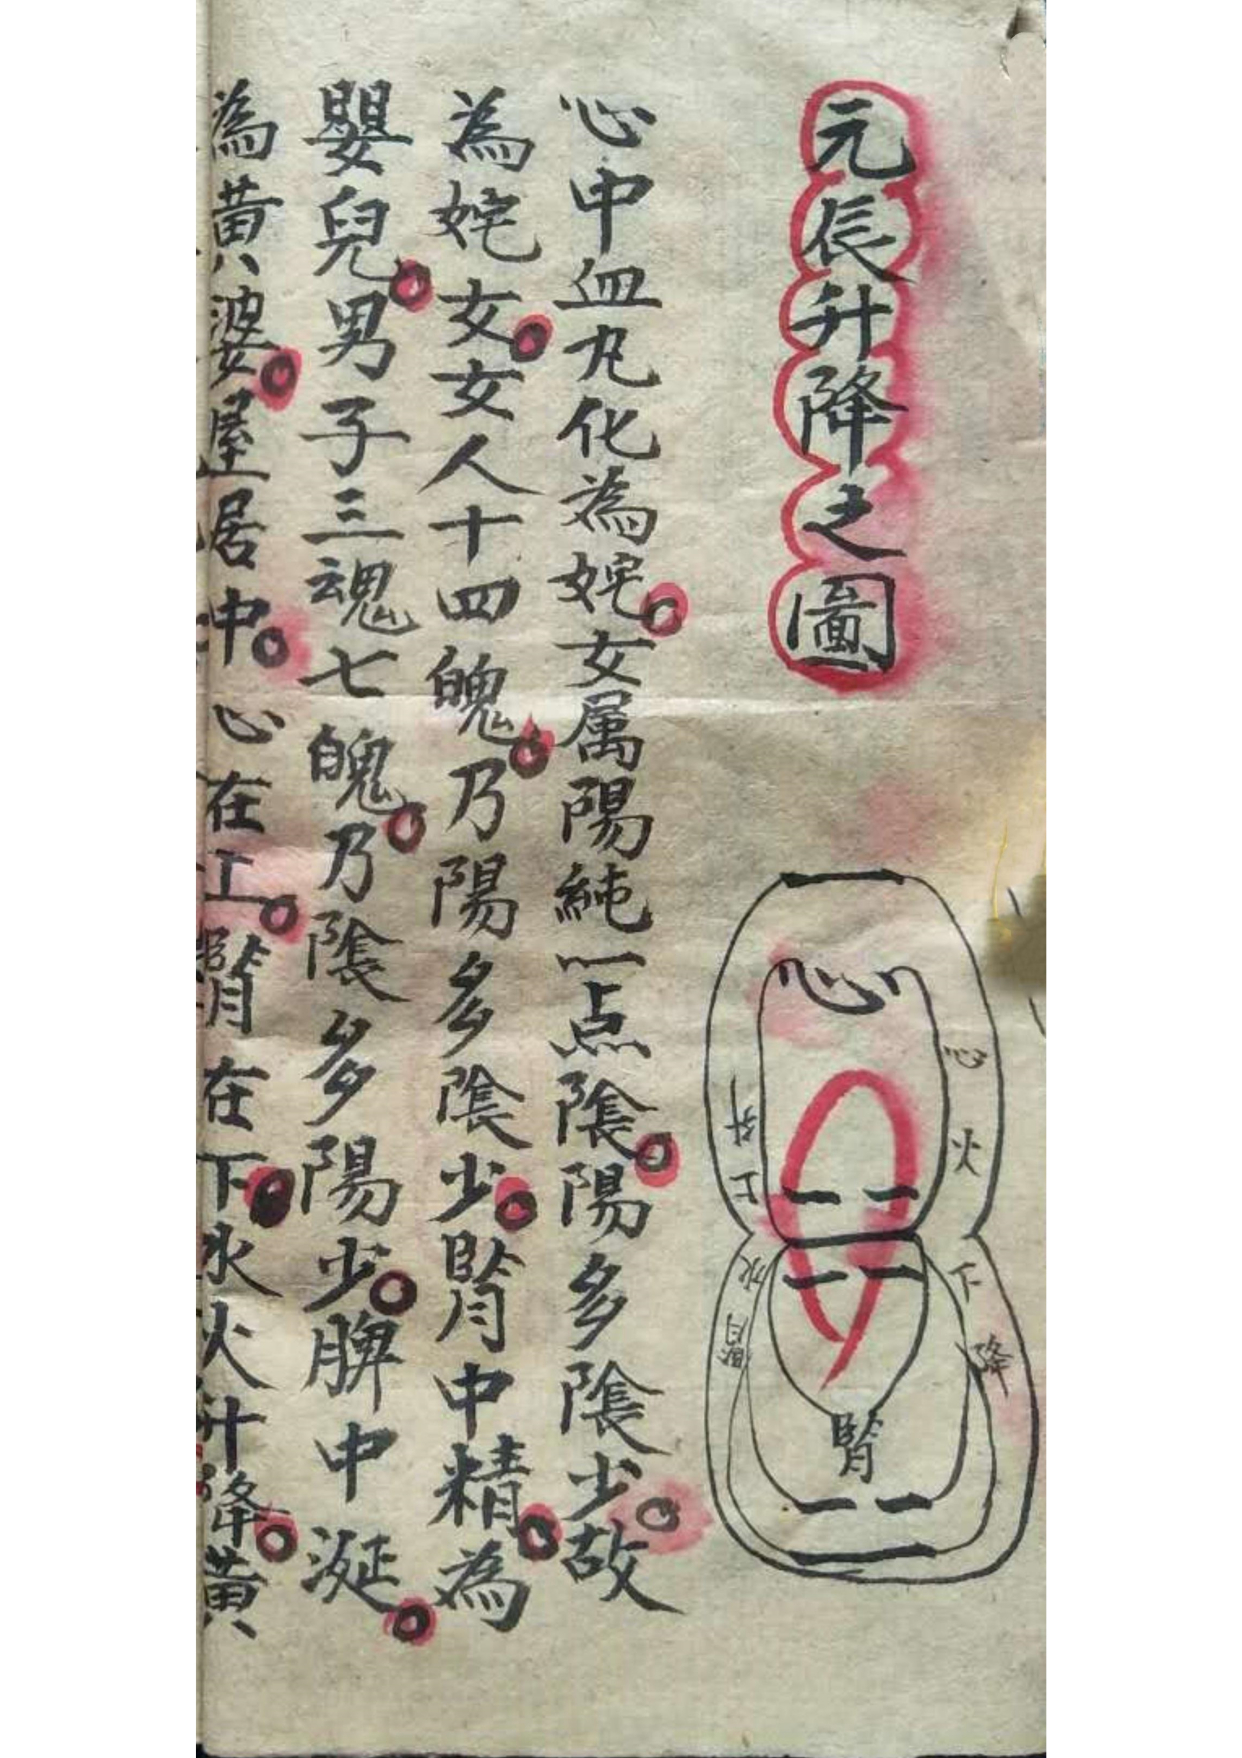 元辰升降之圖
心
心火
下降
上升
腎水
腎
心中血尢化為姹女属陽純一点陰陽多陰少故
為姹女女人十四魄乃陽多陰少腎中精為
嬰兒男子三魂七魄乃陰多陽少脾中涎
為黃婆屋居中心在上腎在下水火升降黃